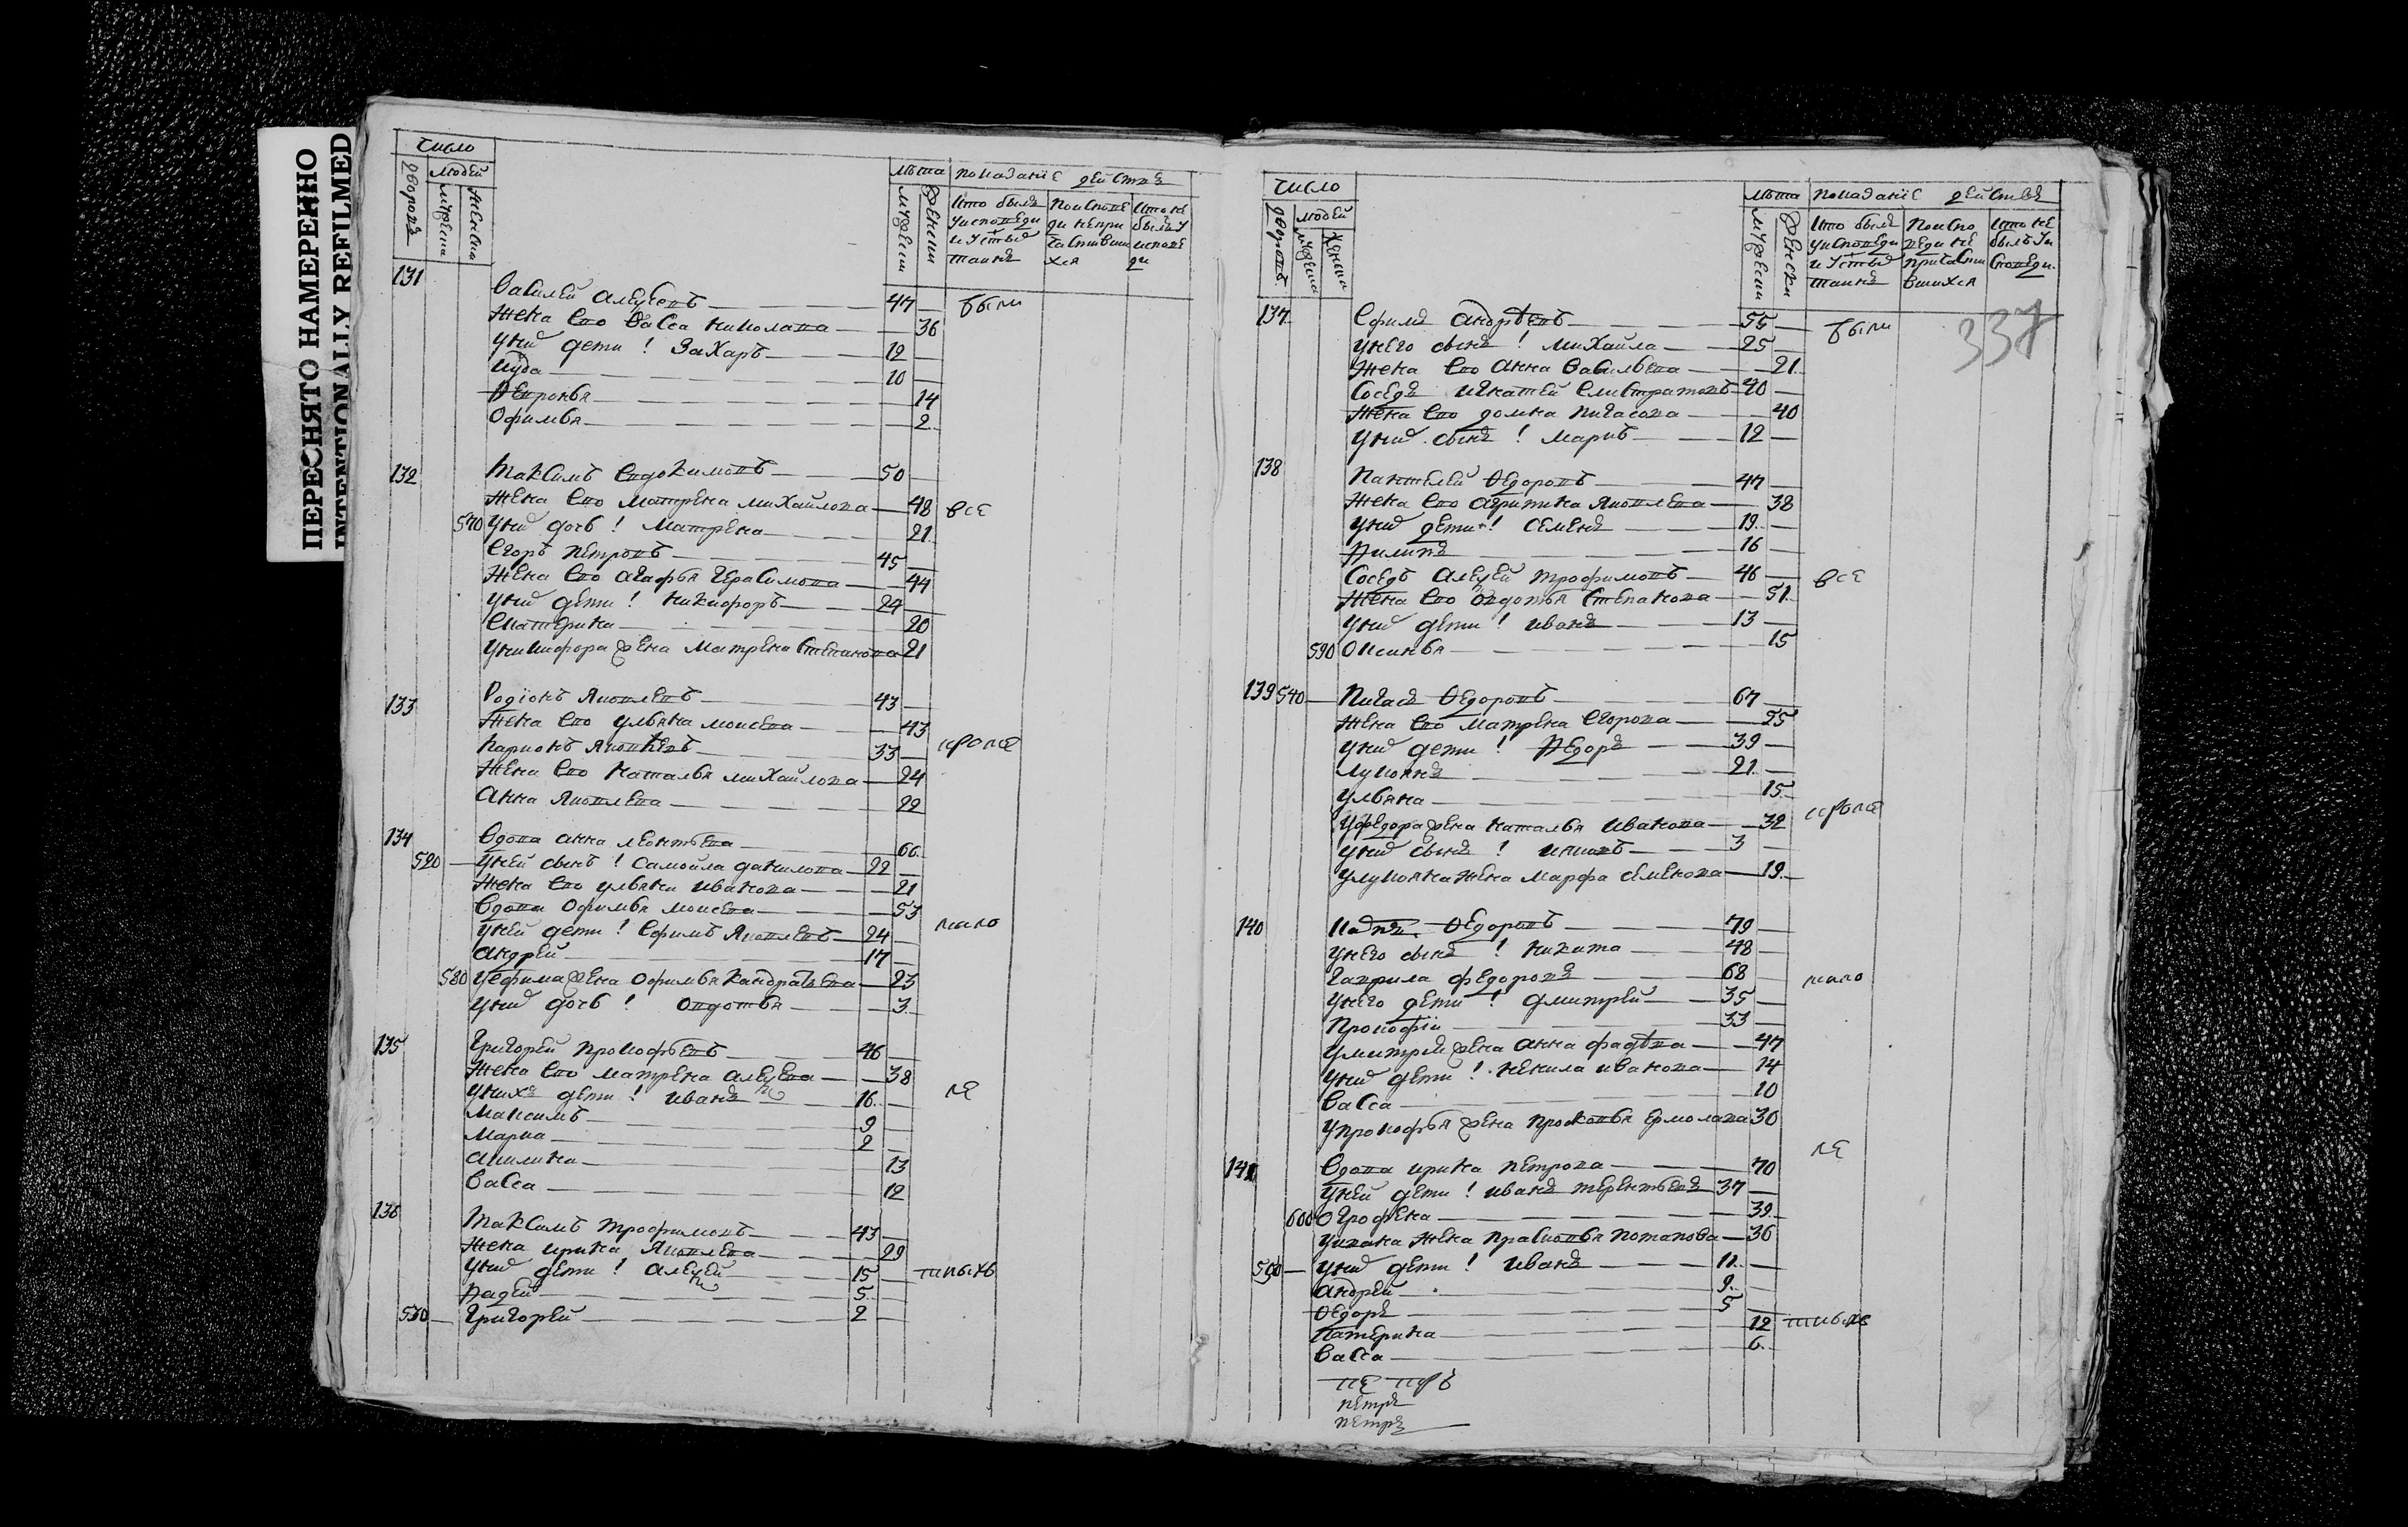 ПЕРЕСНЯТО НАМЕРЕННО
INTENTIONALLY REFILMED
число
дворовъ
людей
мужеска
женска
лѣта
мужески
женски
покаданїе действъ
кто былъ у исповеди и у с:тыхъ таинъ
по исповеди не причастившихся
кто не былъ у исповеди
131
Василей Алеѯеевъ 47 были
жена ево Васса Николаева 36
у них дети: Захаръ 12
Иуда 10
Февронья 14
Офимья 2
132
Максимъ Евдокимовъ 50
жена ево Матрена Михайлова 48 все
570 у них дочь: Матрена 21
Егоръ Петровъ 45
жена ево Агафья Герасимова 44
у них дети: Никифоръ 24
Екатерина 20
у Никифора жена Матрена Степанова 21
133
Родїонъ Яковлевъ 43
жена ево Ульяна Моисева 43
Ларионъ Яковлевъ 33 кроме
жена ево Наталья Михайлова 24
Анна Яковлева 22
134
Вдова Анна Леонтьева 60
520 у ней сынъ: Самойла Данилова 22
жена ево Ульяна Иванова 21
Вдова Офимья Моисева 53
у ней дети: Ефимъ Яковлевъ 24 мало
Андрей 17
580 у Ефима жена Офимья Кандратьева 23
у них дочь: Овдотья 3
135
Григорей Прокофьевъ 46
жена ево Матрена Алеѯева 38
у нихъ дети: Иванъ 16 ле
Максимъ 9
Марка 2
Акилина 13
Васса 12
136
Максимъ Трофимовъ 43
жена Ирина Яковлева 29
у них дети: Алеѯей 15
Фадей 5
530 Григорей 2
число
дворовъ
людей
мужеска
женска
лѣта
мужески
женски
покаданїе действъ
кто былъ у исповеди и у с:тыхъ таинъ
по исповеди не причастившихся
кто не былъ у исповеди
337
137
Ефимъ Андрѣевъ 55 были
у него сынъ: Михайла 25
жена ево Анна Васильева 21
Соседъ Игнатей Елистратовъ 40
жена ево Домна Пигасова 40
у них сынъ: Маркъ 12
138
Пантелей Ѳедоровъ 47
жена ево Агрипина Яковлева 38
у них дети: Семенъ 19
Филипъ 16
Соседъ Алеѯей Трофимовъ 46 все
жена ево Овдотья Степанова 51
у них дети: Иванъ 13
590 Оксинья 15
139 540 Пигасъ Ѳедоровъ 67
жена ево Матрена Егорова 55
у них дети: Федоръ 39
Лукоянъ 21
Ульяна 15
у Федора жена Наталья Иванова 32 кроме
у них сынъ: 3
у Лукояна жена Марфа Семенова 19
140
Ѳедоровъ 79
у него сынъ: Никита 48
Гаврила Федоровъ 68 мало
у него дети: Дмитрей 35
Прокофїи 33
у Митрей жена Анна Фадѣва 47
у них дети: Ненила Иванова 14
Васса 10
у Прокофья жена Прокопья Ермолава 30
ле
141
Вдова Ирина Петрова 70
у ней дети: Иванъ Терентьевъ 37
600 Огрофена 39
у Ивана жена Прасковья Потапова 36
550 у них дети: Иванъ 11
Андрей 9
Ѳедоръ 5
Катерина 12
Васса 6
Петръ
Петръ